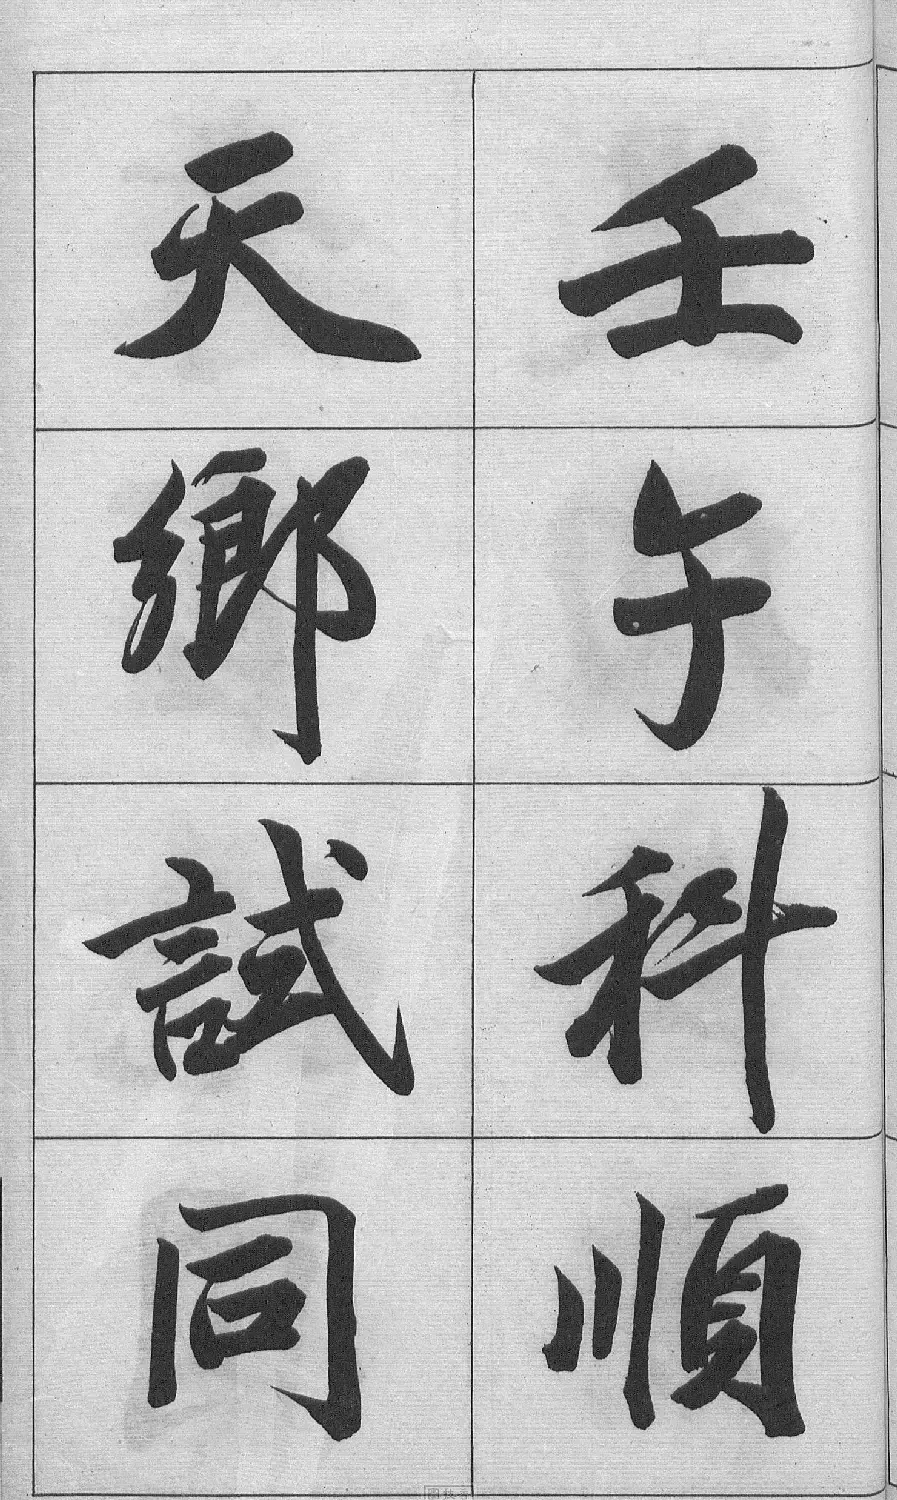 壬午科順
天鄉試同